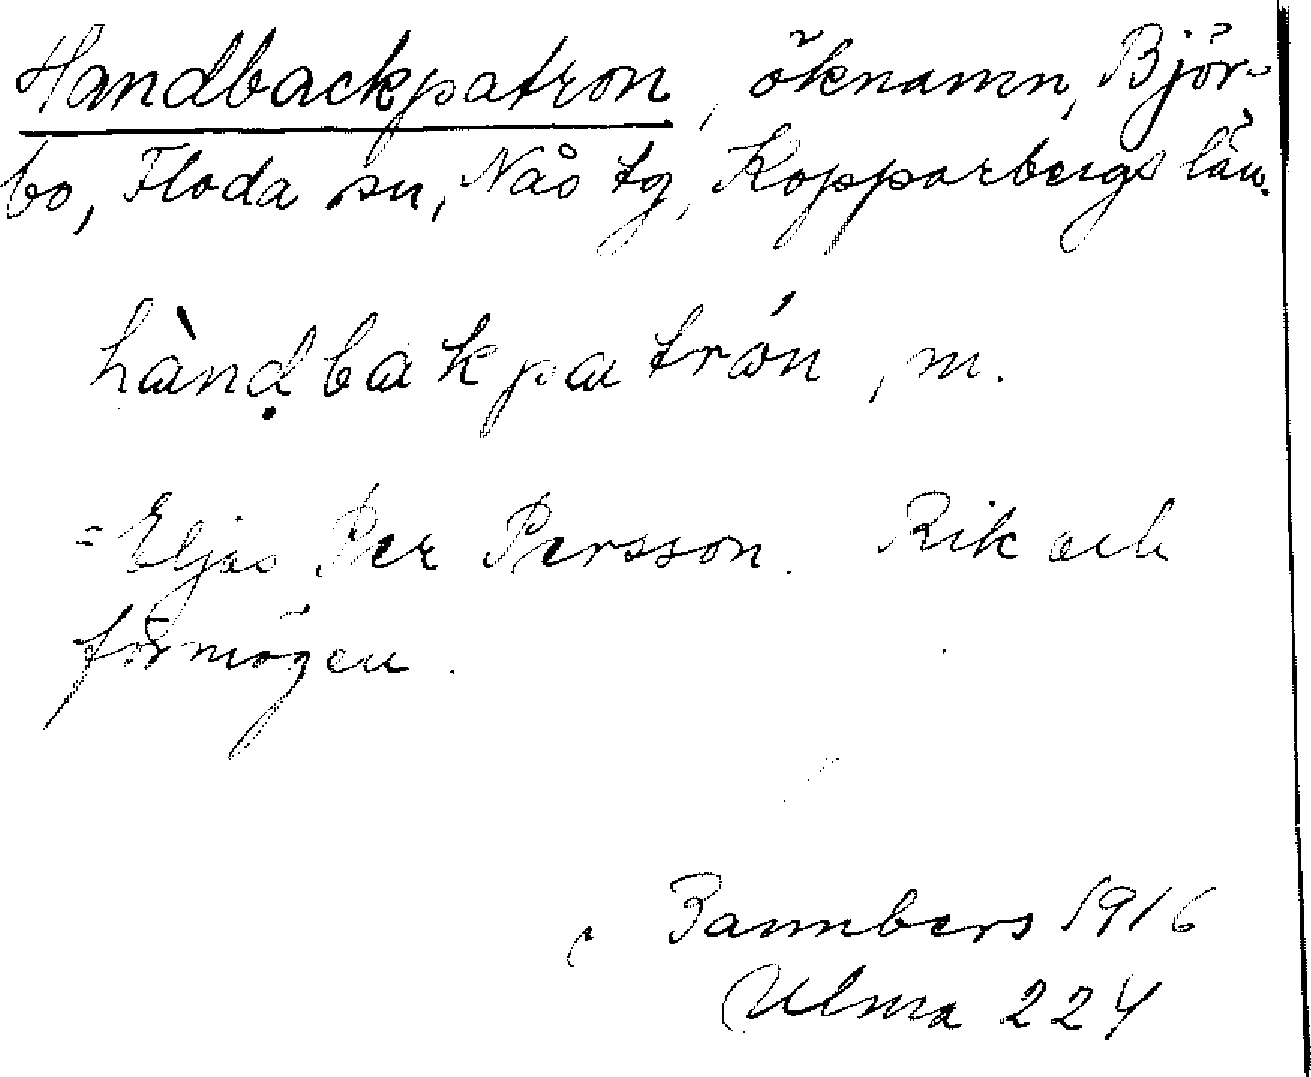 Handbackpatron, öknamn, Björ-
bo, Floda sn, Nås tg, Kopparbergs län.
hàndḅakpatrón, m.
= Eljas Per Persson. Rik och
förmögen.
Bannbers 1916
Ulma 224